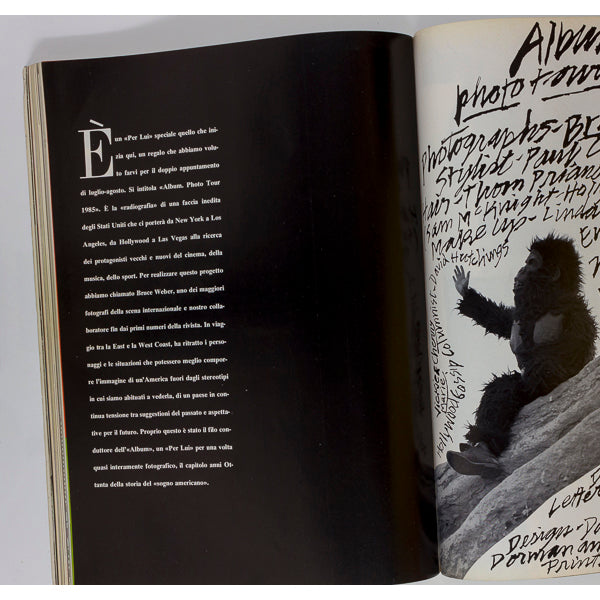 È un «Per Lui» speciale quello che ini-
zia qui, un regalo che abbiamo volu-
to farvi per il doppio appuntamento
di luglio-agosto. Si intitola «Album. Photo Tour
1985». È la «radiografia» di una faccia inedita
degli Stati Uniti che ci porterà da New York a Los
Angeles, da Hollywood a Las Vegas alla ricerca
dei protagonisti vecchi e nuovi del cinema, della
musica, dello sport. Per realizzare questo progetto
abbiamo chiamato Bruce Weber, uno dei maggiori
fotografi della scena internazionale e nostro colla-
boratore fin dai primi numeri della rivista. In viag-
gio tra la East e la West Coast, ha ritratto i perso-
naggi e le situazioni che potessero meglio compor-
re l'immagine di un'America fuori dagli stereotipi
in cui siamo abituati a vederla, di un paese in con-
tinua tensione tra suggestioni del passato e aspetta-
tive per il futuro. Proprio questo è stato il filo con-
duttore dell'«Album», un «Per Lui» per una volta
quasi interamente fotografico, il capitolo anni Ot-
tanta della storia del «sogno americano».
Album
photo
Photographs-Br
Stylist-Paul C
Hair Thom Prian
Sam McKnight-Holl
Make up-Linda
David Hutchings
Marie
Hollywood Gossip Columnist
Letter
Design-D
Dorman an
Prints